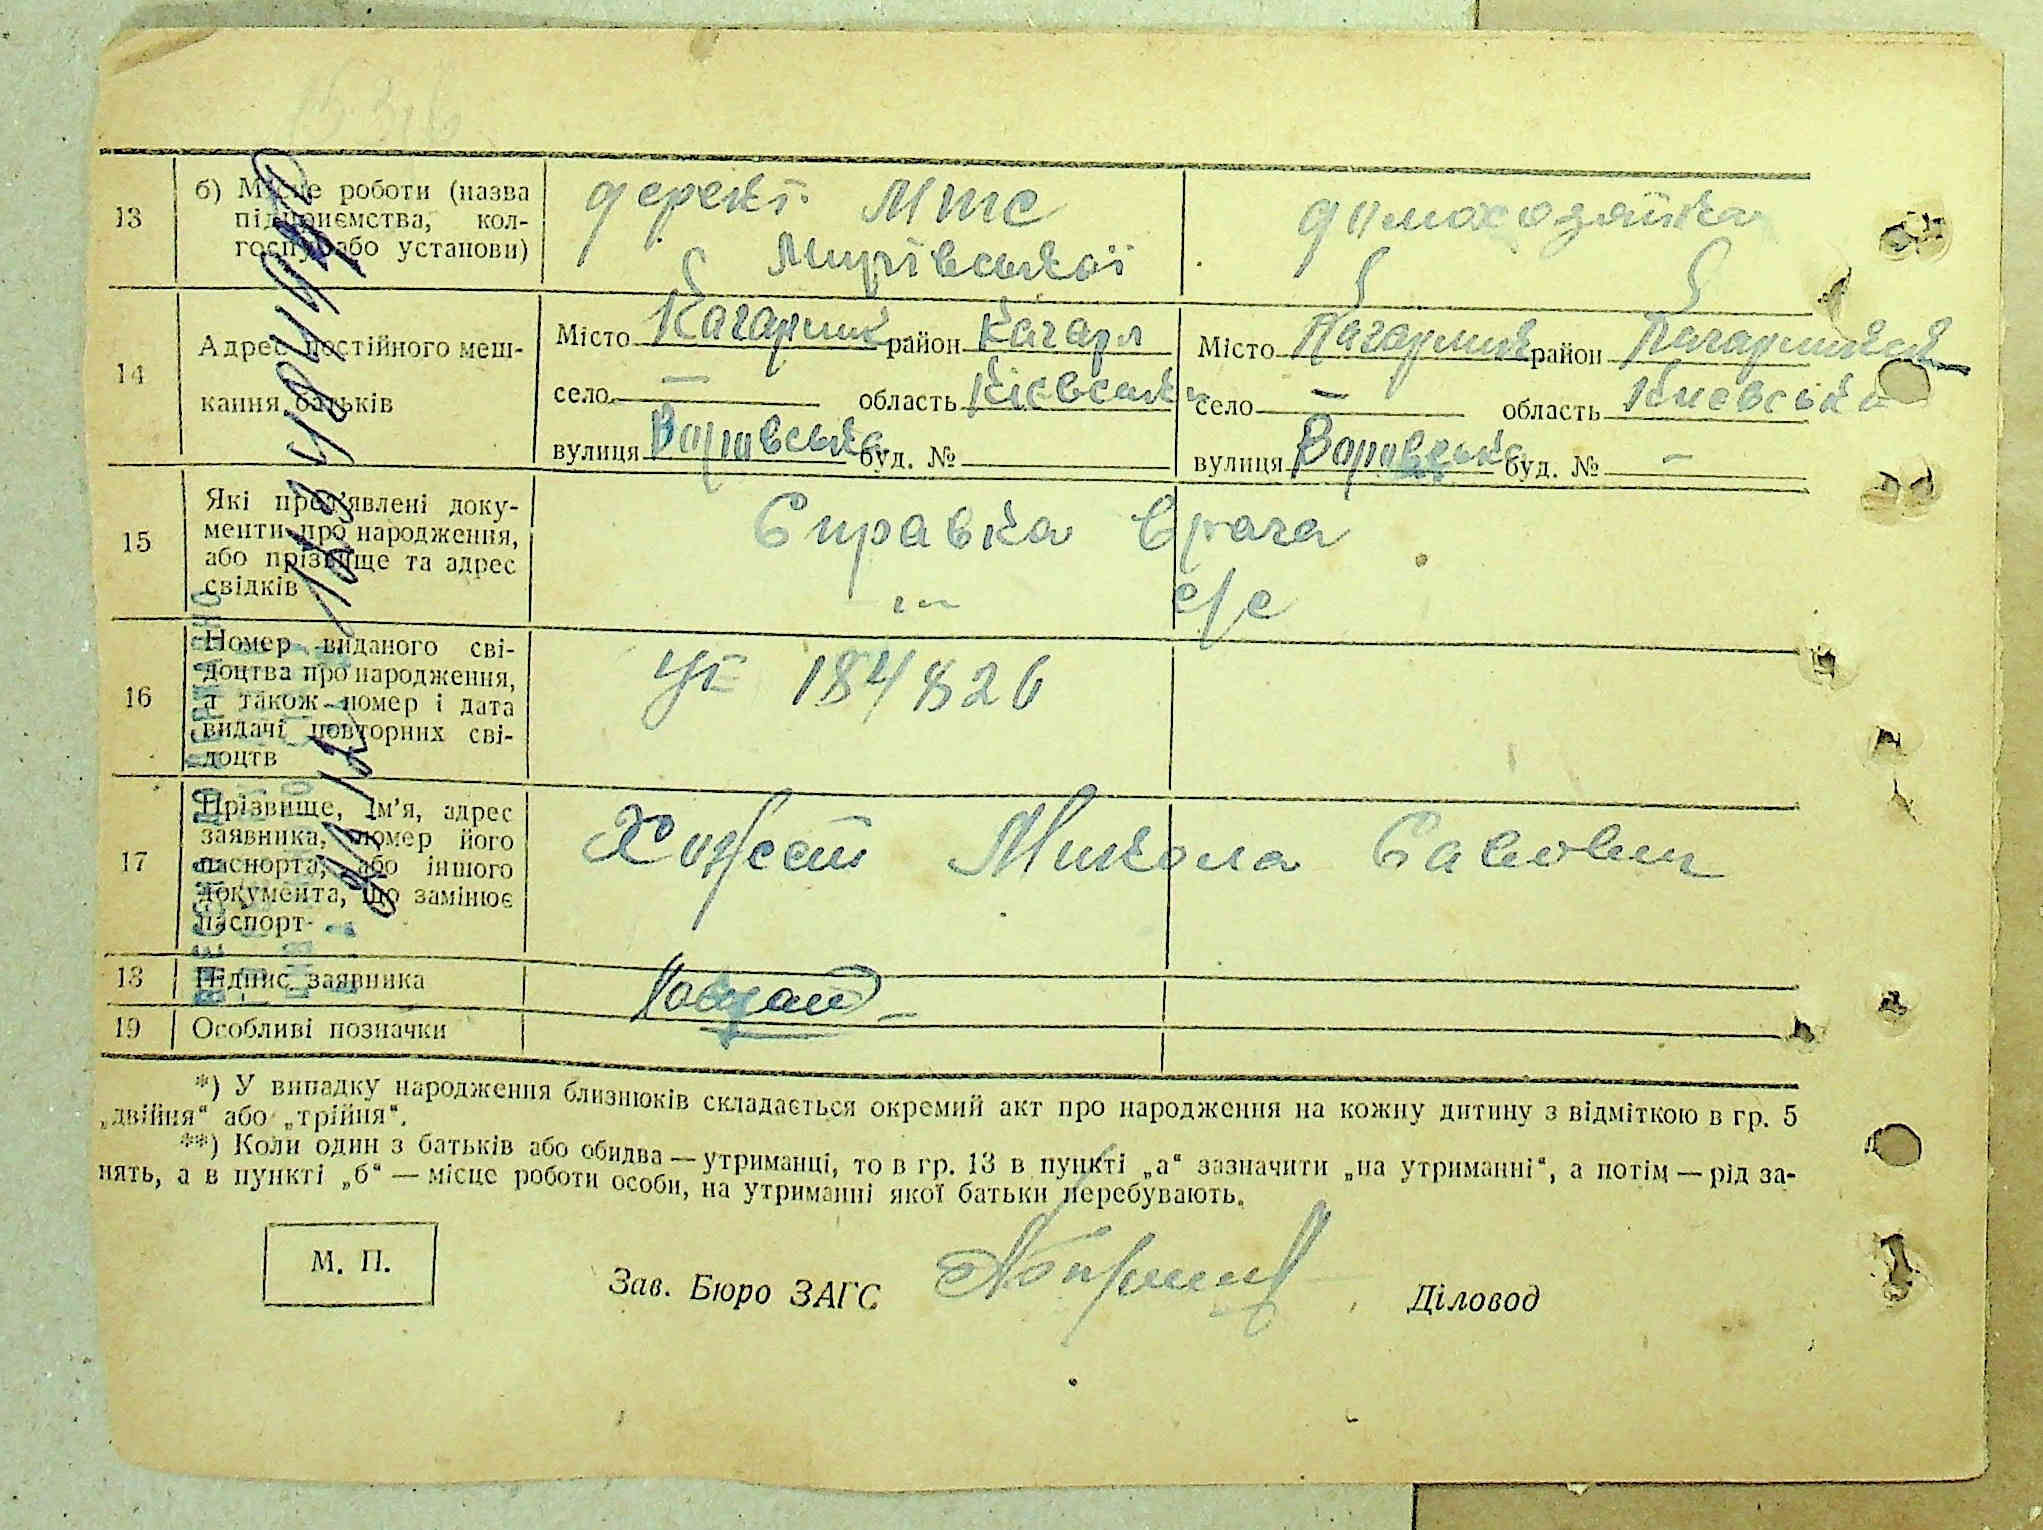 13
б) Місце роботи (назва
підприємства, кол-
госпу або установи)
директ. МТС
Мирівської
домохозяйка
14
Адрес постійного меш-
кання батьків
Місто Кагарлик район Кагарл
село — область Київськ
вулиця Воровська буд. №
Місто Кагарлик район Кагарлицький
село — область Києвська
вулиця Воровська буд. № –
15
Які пред'явлені доку-
менти про народження,
або прізвище та адрес
свідків
Справка врача
с/с
16
Номер виданого сві-
доцтва про народження,
а також номер і дата
видачі повторних сві-
доцтв
184826
17
Прізвище, ім'я, адрес
заявника, номер його
паспорта, або іншого
документа, що замінює
паспорт
Микола Савович
18
Підпис заявника
19
Особливі позначки
*) У випадку народження близнюків складається окремий акт про народження на кожну дитину з відміткою в гр. 5
„двійня“ або „трійня“.
**) Коли один з батьків або обидва — утриманці, то в гр. 13 в пункті „а“ зазначити „на утриманні“, а потім — рід за-
нять, а в пункті „б“ — місце роботи особи, на утриманні якої батьки перебувають.
М. П.
Зав. Бюро ЗАГС
Діловод